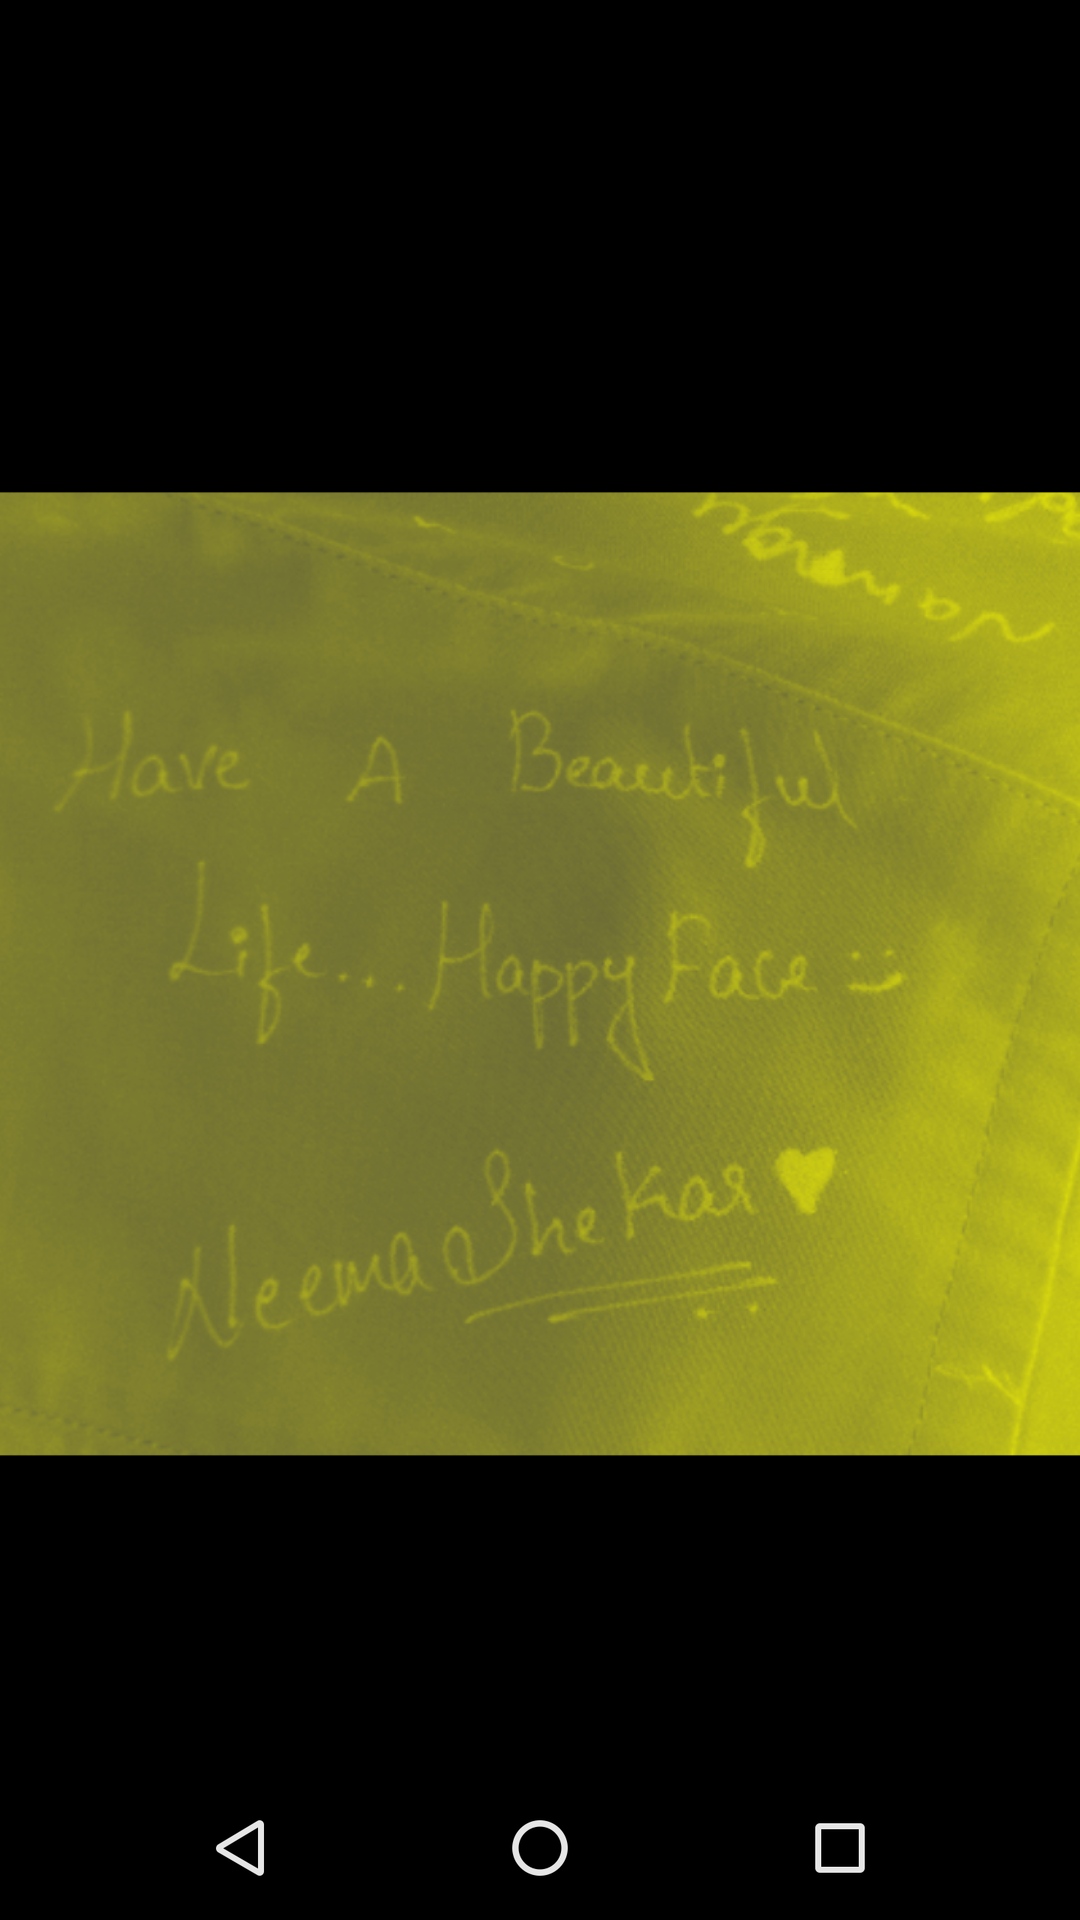 Have A Beautiful
Life... Happy Face :)
Neema Shekar ♥